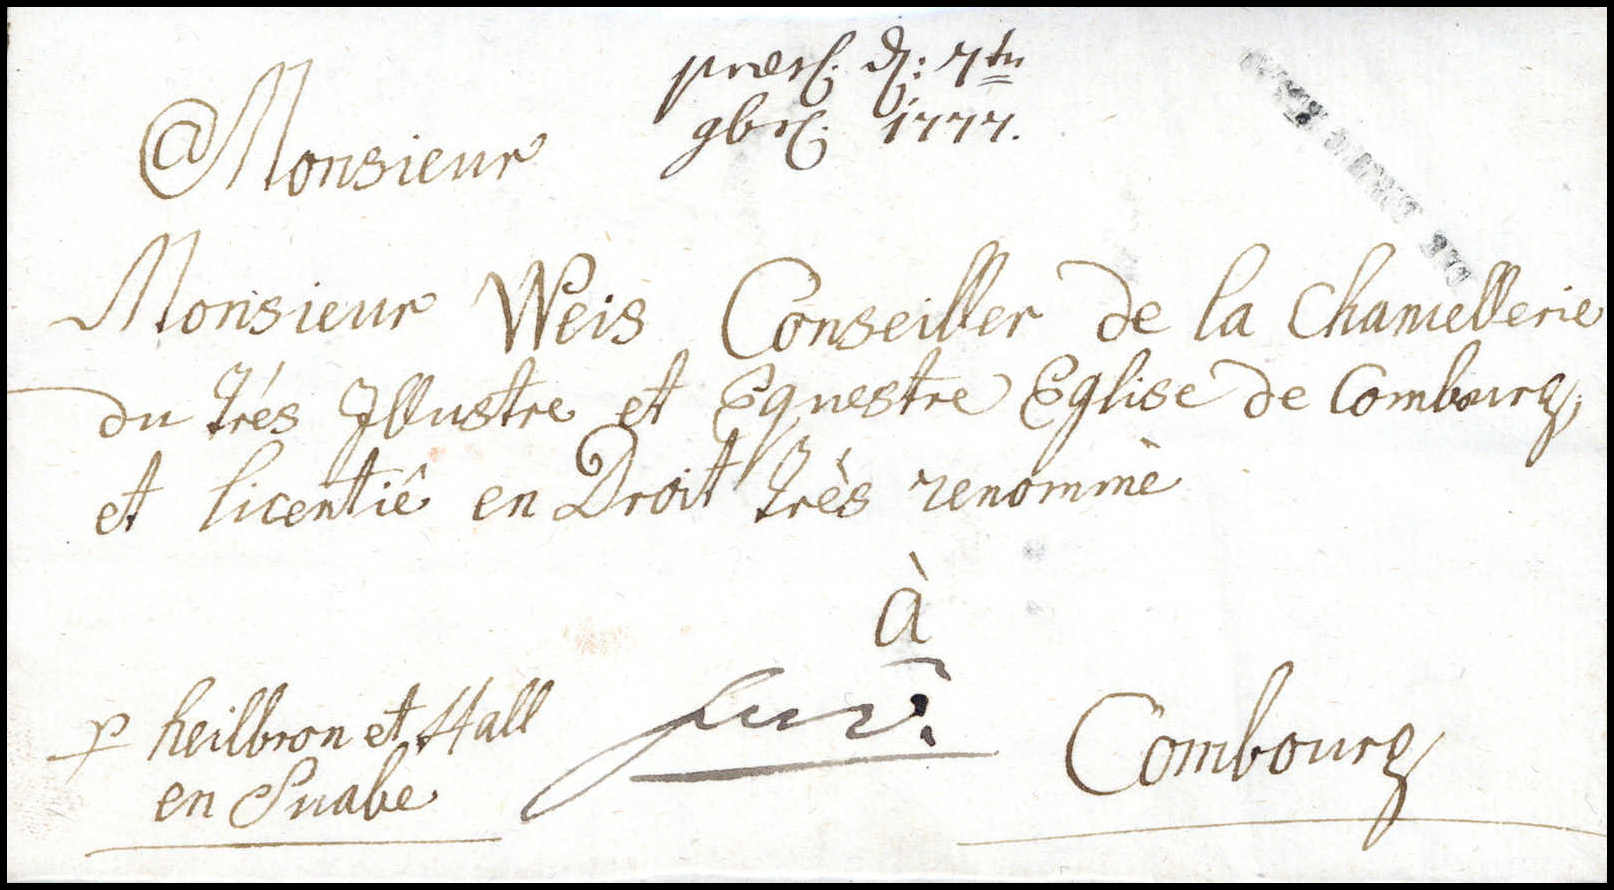 præs. d: 7tn
9brs. 1777.
@ Monsieur
Monsieur Weis Conseiller de la Chancellerie
du trés Illustre et Equestre Eglise de Combourg,
et licentiê en Droit très renommè
à
p heilbron et Hall
en Suabe
Combourg